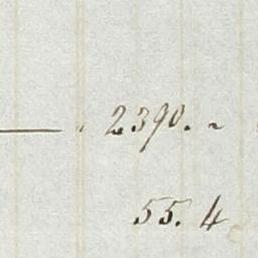 — 2390. -
55. 4